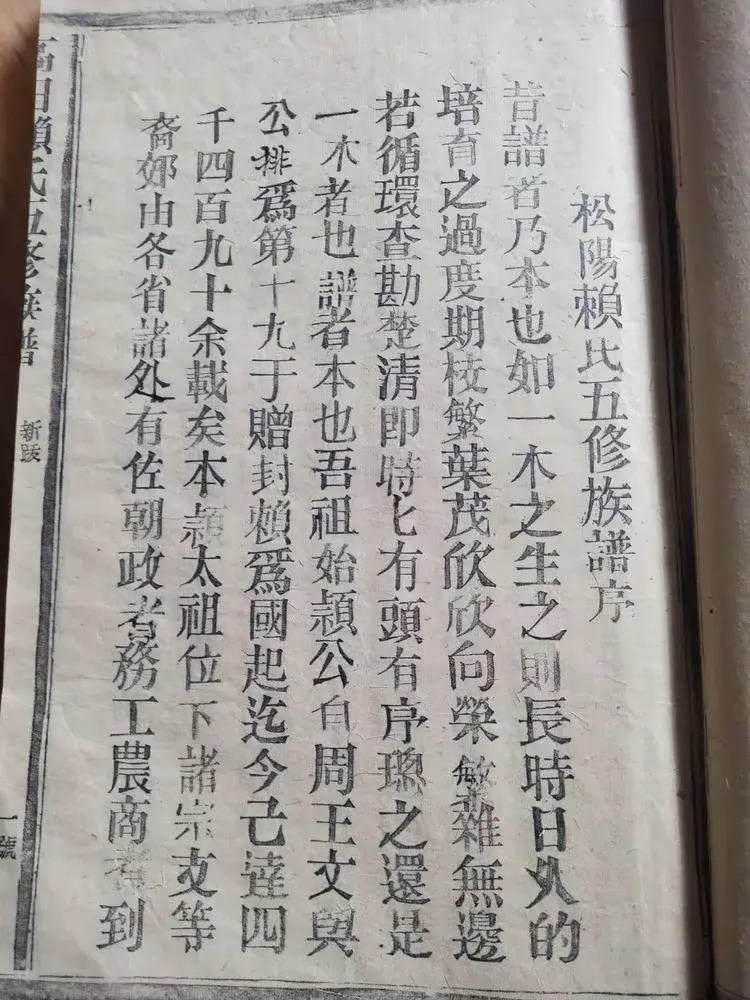 松陽賴氏五修族譜序
昔譜者乃本也如一木之生之則長時日久的
培育之過度期枝繁葉茂欣欣向榮繁雜無邊
若循環查勘楚清即時匕有頭有序總之還是
一木者也譜者本也吾祖始穎公自周王文與
公排爲第十九于贈封賴爲國起迄今己達四
千四百九十余載矣本穎太祖位下諸宗支等
裔郊由各省諸处有佐朝政者務工農商者到
田賴氏五修族譜
新跋
一號